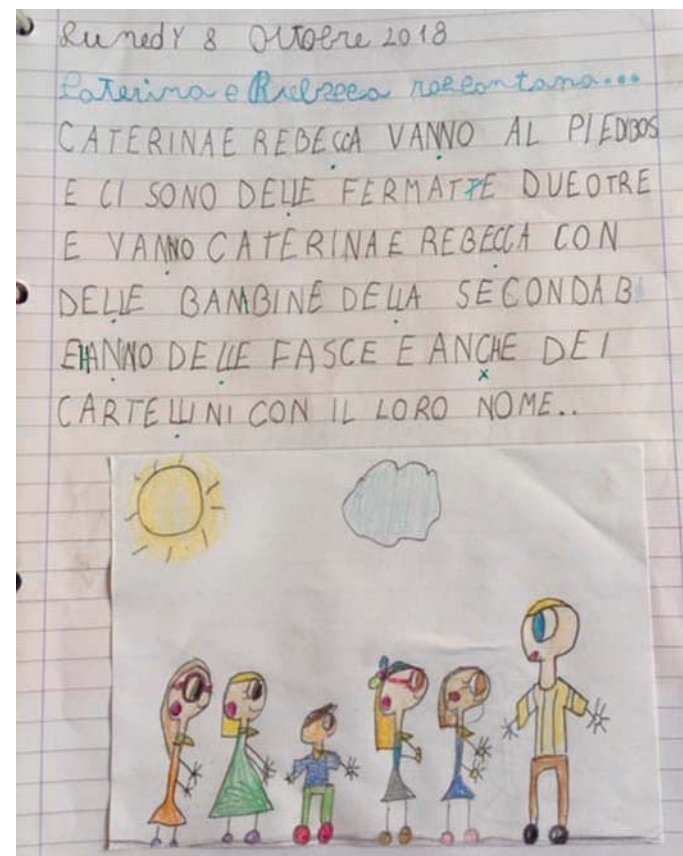 Lunedì 8 Ottobre 2018
Caterina e Rebecca raccontano...
CATERINAE REBECCA VANNO AL PIEDIBOS
E CI SONO DELLE FERMATTE DUEOTRE
E VANNO CATERINAE REBECCA CON
DELLE BAMBINE DELLA SECONDA B
EHANNO DELLE FASCE E ANCHE DEI
CARTELLINI CON IL LORO NOME..